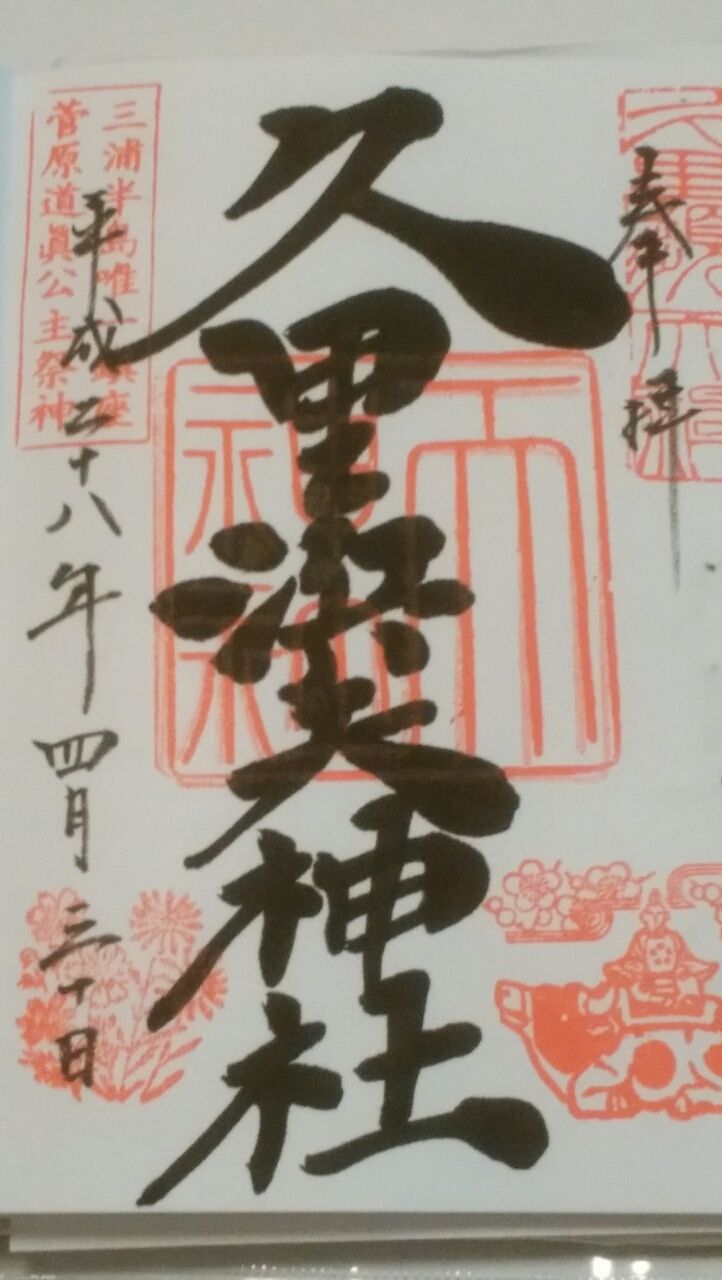 奉拝
久里濱天神社
天
神社
三浦半島唯一鎮座
菅原道眞公主祭神
平成二十八年四月三十日